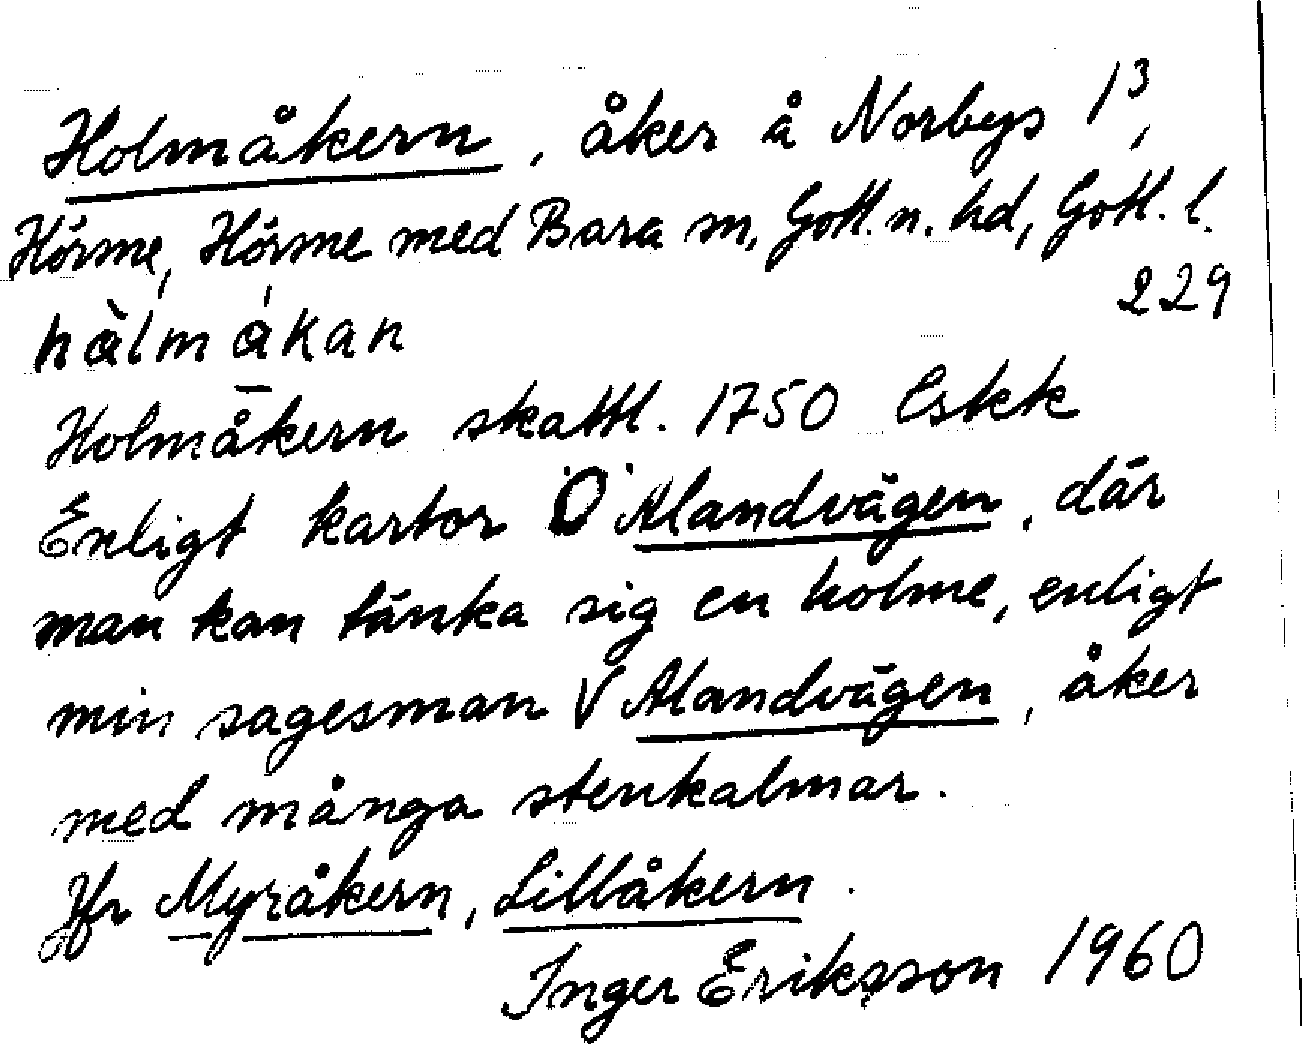 Holmåkern, åker å Norbys 1³,
Hörme, Hörme med Bara m, Gotl. n. hd, Gotl. l.
229
hàlmákan
Holmåkern skattl. 1750 Eskk
Enligt kartor Ö Alandvägen, där
man kan tänka sig en holme, enligt
min sagesman V Alandvägen, åker
med många stenkalmar.
Jfr Myråkern, Lillåkern.
Inger Eriksson 1960